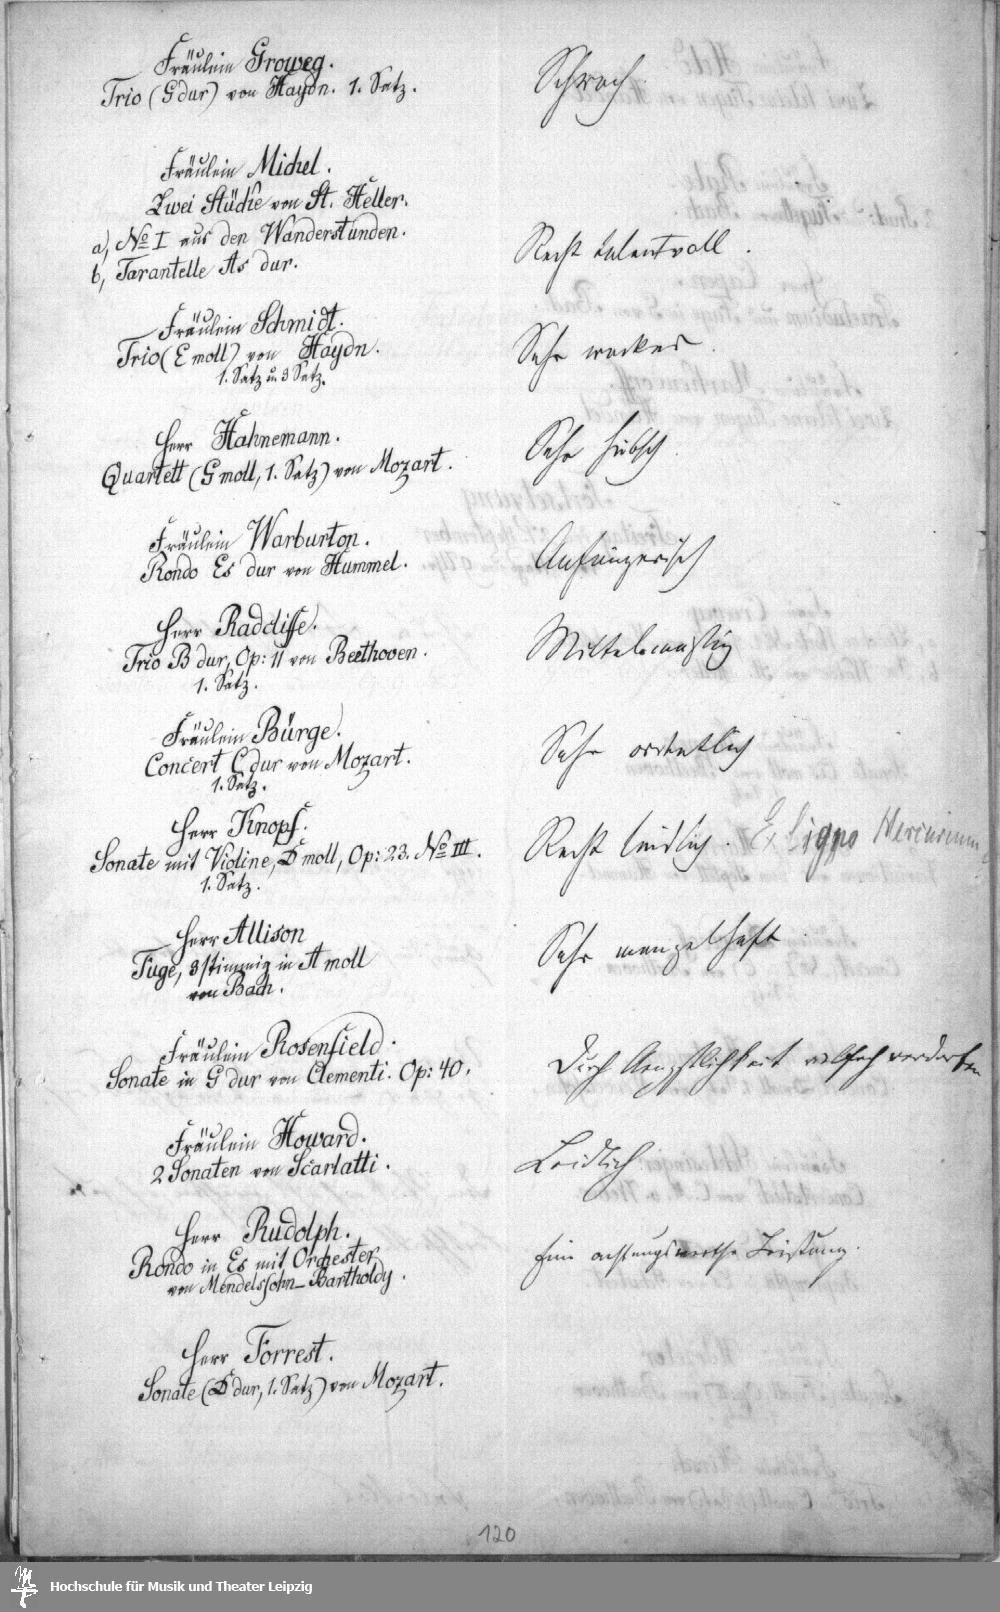 Fräulein Groweg.
Trio (G dur) von Haydn. 1. Satz.
Schwach.
Fräulein Michel.
Zwei Stücke von St. Heller.
a, No I aus den Wanderstunden.
b, Tarantelle As dur.
Recht talentvoll.
Fräulein Schmidt.
Trio (E moll) von Haydn.
1. Satz u. 3 Satz.
Sehr wacker.
Herr Hahnemann.
Quartett (G moll, 1. Satz) von Mozart.
Sehr hübsch.
Fräulein Warburton.
Rondo Es dur von Hummel.
Anfängerisch
Herr Radcliffe.
Trio B dur, Op: 11 von Beethoven.
1. Satz.
Mittelmäßig
Fräulein Bürge.
Concert C dur von Mozart.
1. Satz.
Sehr ordentlich
Herr Knopf.
Sonate mit Violine, D moll, Op: 23. No III.
1. Satz.
Recht leidlich. Ex Ligno Mercurium
Herr Allison
Fuge, 3stimmig in A moll
von Bach.
Sehr mangelhaft
Fräulein Rosenfield.
Sonate in G dur von Clementi. Op: 40.
Durch Aengstlichkeit vielfach verdorben
Fräulein Howard.
2 Sonaten von Scarlatti.
Leidlich
Herr Rudolph.
Rondo in Es mit Orchester
von Mendelssohn-Bartholdy.
Eine achtungswerthe Leistung.
Herr Forrest.
Sonate (D dur, 1. Satz) von Mozart.
120
Hochschule für Musik und Theater Leipzig